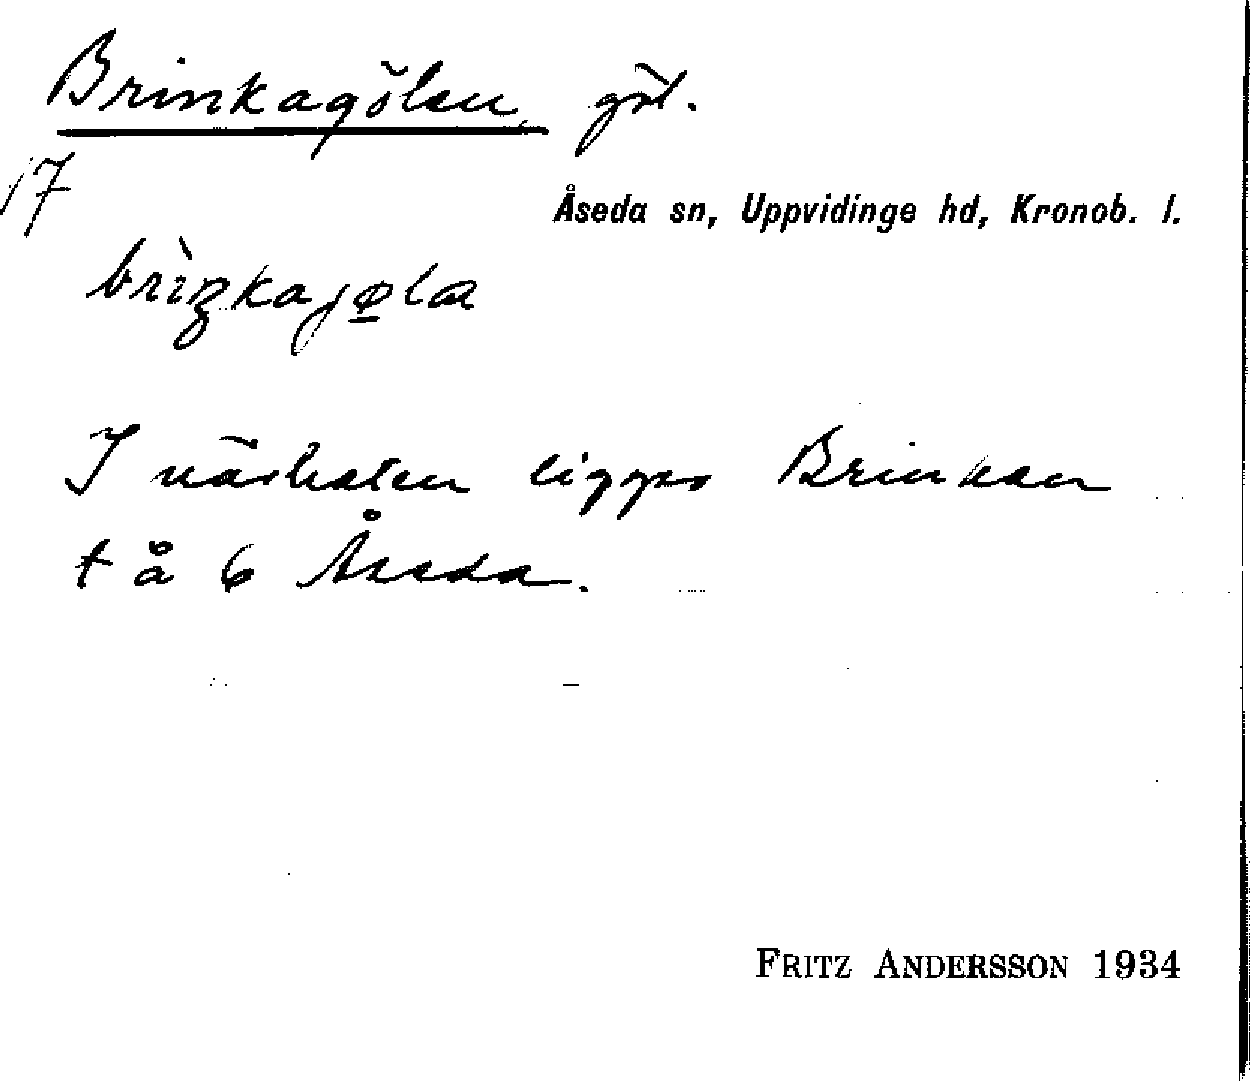 Brinkagölen göl.
17
Åseda sn, Uppvidinge hd, Kronob. l.
brìŋkajø̲la
I närheten ligger Brinken
t å 6 Åseda.
FRITZ ANDERSSON 1934